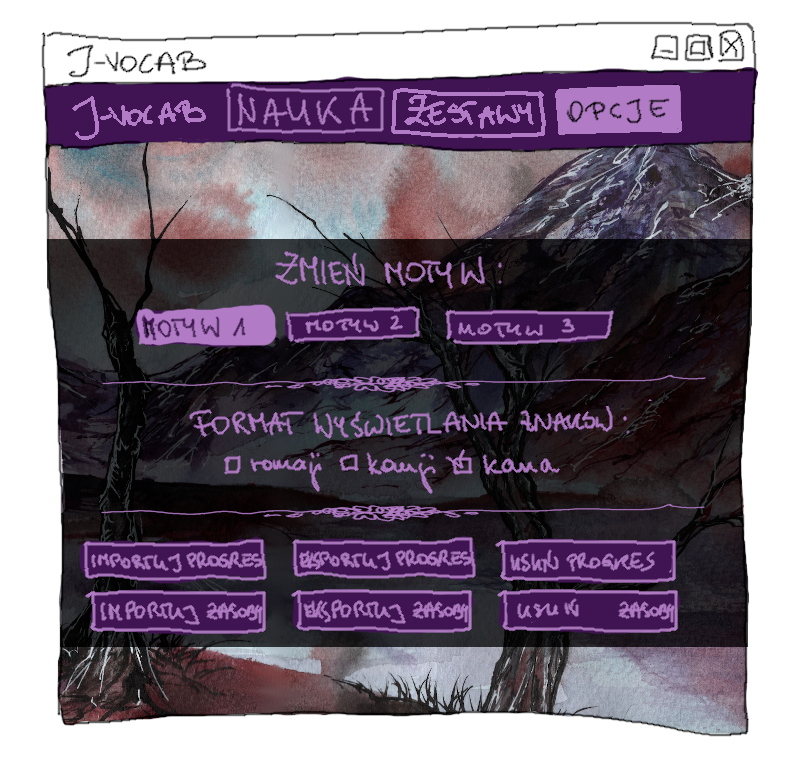 J-VOCAB
J-VOCAB NAUKA ZESTAWY OPCJE
ZMIEŃ MOTYW:
MOTYW 1 MOTYW 2 MOTYW 3
FORMAT WYŚWIETLANIA ZNAKÓW:
romaji kanji kana
IMPORTUJ PROGRES EKSPORTUJ PROGRES USUŃ PROGRES
IMPORTUJ ZASOBY EKSPORTUJ ZASOBY USUŃ ZASOBY